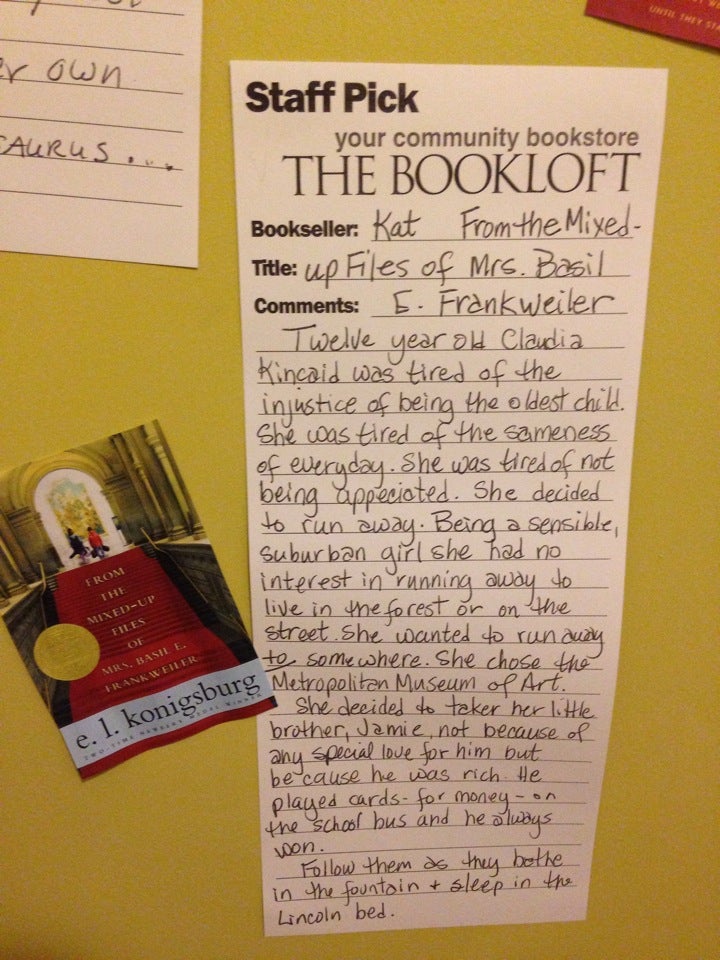 er own
SAURUS...
UNTIL THEY STA
Staff Pick
your community bookstore
THE BOOKLOFT
Bookseller: Kat From the Mixed-
Title: up Files of Mrs. Basil
Comments: E. Frankweiler
Twelve year old Claudia
Kincaid was tired of the
injustice of being the oldest child.
She was tired of the sameness
of everyday. She was tired of not
being appeciated. She decided
to run away. Being a sensible,
suburban girl she had no
interest in running away to
live in the forest or on the
street. She wanted to run away
to somewhere. She chose the
Metropolitan Museum of Art.
She decided to taker her little
brother, Jamie, not because of
any special love for him but
because he was rich. He
played cards - for money - on
the school bus and he always
won.
Follow them as they bathe
in the fountain + sleep in the
Lincoln bed.
FROM
THE
MIXED-UP
FILES
OF
MRS. BASIL E.
FRANKWEILER
e. l. konigsburg
TWO-TIME NEWBERY MEDAL WINNER